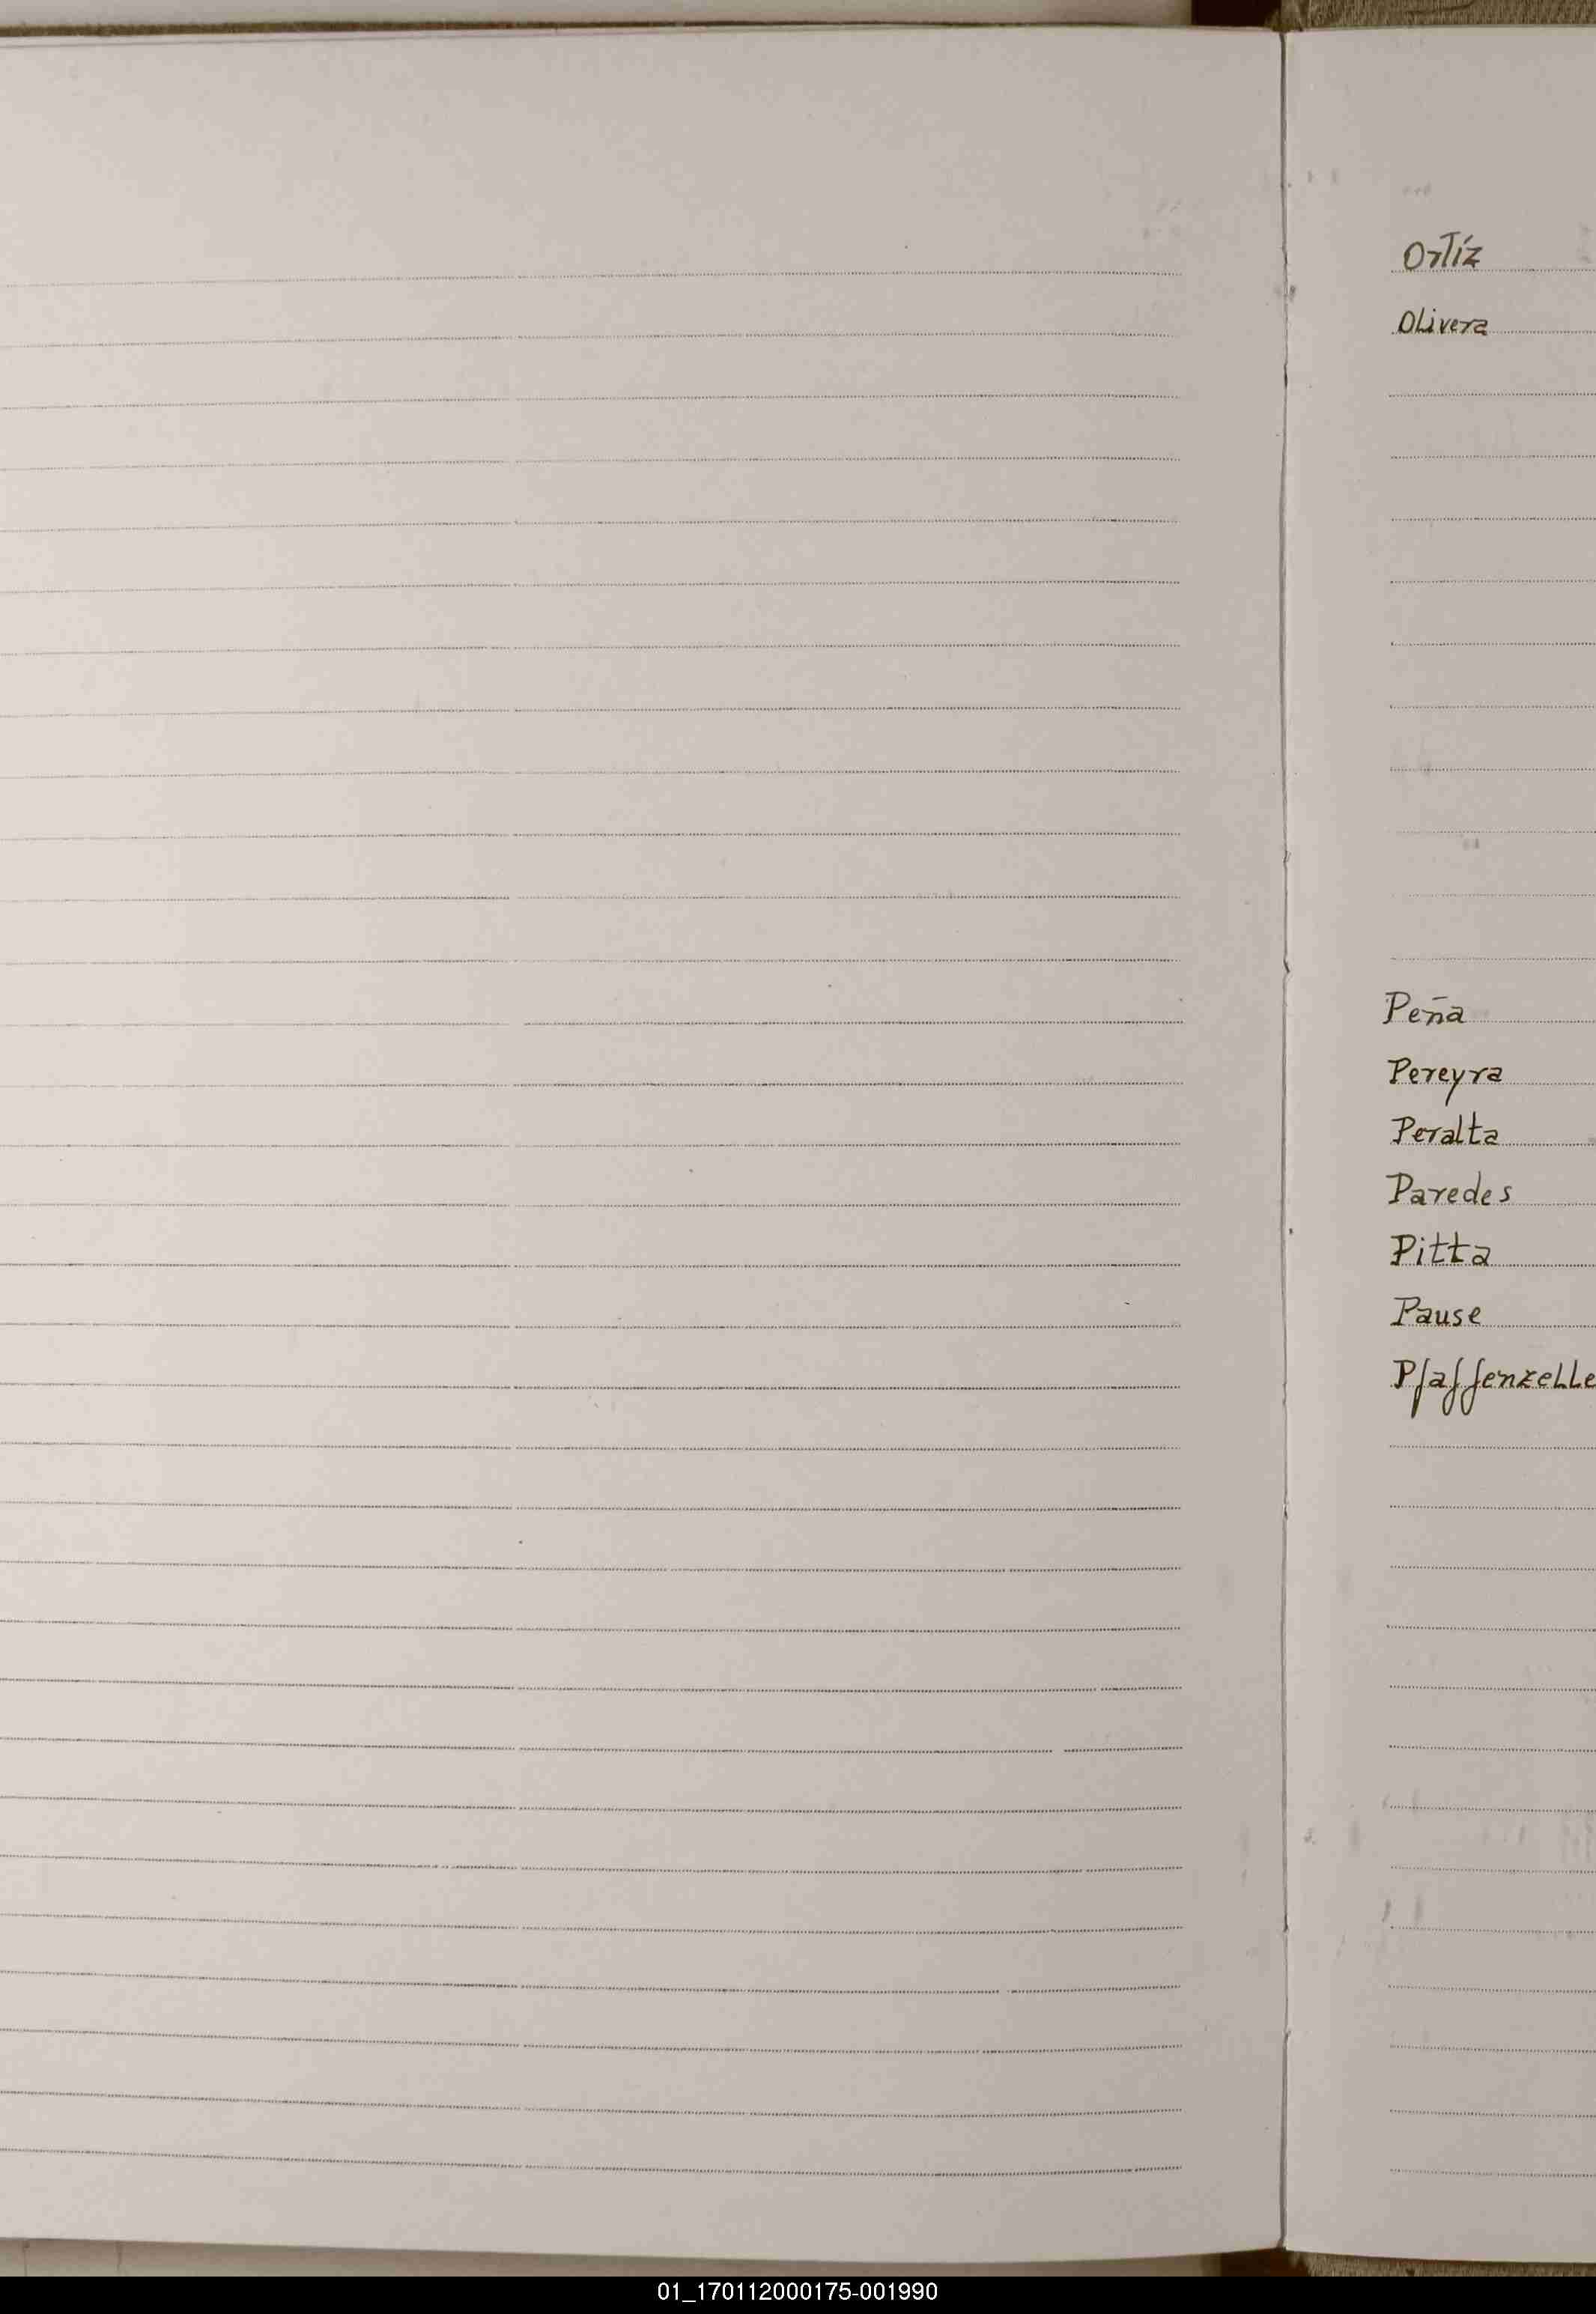 Ortíz
Olivera
Peña
Pereyra
Peralta
Paredes
Pitta
Pause
Pfaffenzelle
01_170112000175-001990